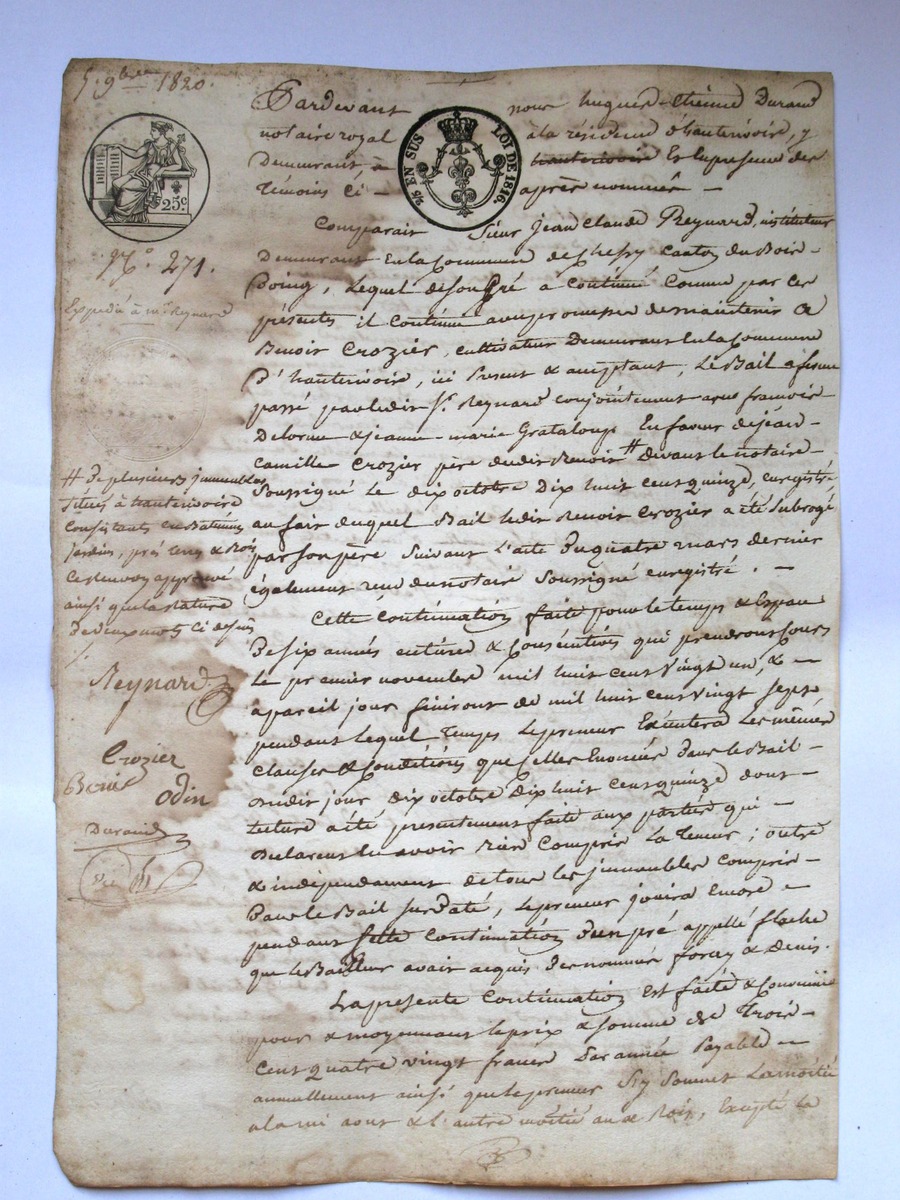 5. 9bre 1820.
Pardevant nous hugues Etienne Durand
notaire royal à la résidence d'hauterivoire, y
Demeurant, hauterivoire Et En presence des
Temoins Ci – après nommés –
25c.
5/6 EN SUS LOI DE 1816.
N.o 271.
Expedié à mr Reynard
Comparait Sieur Jean Claude Reynard, instituteur
Demeurant En la Commune de Chessy Canton du Bois-
D'oing, Lequel de Son Gré à Continué Comme par Ces
présentes il Continue avec promesse de maintenir a
Benoit Crozier, cultivateur Demeurant En la Commune
D'hauterivoire, ici Present & acceptant, Le Bail a ferme
passé par ledit Sr. Reynard conjointement avec francois
Delorme & jeanne-marie Grataloup En faveur de jean-
Camille Crozier père dudit Benoit # Devant le notaire
Soussigné Le dix octobre Dix huit Cent quinze, enregistré
au fait duquel Bail ledit Benoit Crozier a été Subrogé
par Son père Suivant L'acte Du quatre mars dernier
également reçu du notaire Soussigné enregistré. –
# De plusieurs immeubles
Situés à hauterivoire
Consistants en Batiments
jardins, prés terres & Bois
Ce renvoy approuvé
ainsi que la rature
De deux mots Ci dessus
Reynard
Crozier
Benoit
Odin
Durand
Cette Continuation faite pour le temps & Espace
De six années entieres & Consécutives qui prendront Cours
Le premier novembre mil huit Cent vingt un, & –
à pareil jour finiront de mil huit Cent vingt Sept
pendant lequel Temps Le preneur Exécutera Les mêmes
Clauses & Conditions que Celles Enoncées Dans le Bail –
dudit jour dix octobre Dix huit Cent quinze dont –
lecture a été presentement faite aux parties qui –
Declarent en avoir Bien Compris La Teneur; outre
& indépendament de tous les immeubles Compris –
Dans le Bail Sus Daté, Le preneur jouira Encore –
pendant Cette Continuation D'un pré appellé flache
que le Bailleur avait acquis Des nommés foray & Denis.
La presente Continuation Est faite & Convenue
pour & moyennant le prix & Somme de Trois –
Cent quatre vingt francs Par année Payable –
annuellement ainsi que le preneur S'y Soumet La moitié
a la mi aout & l'autre moitié aux Rois, Excepté la